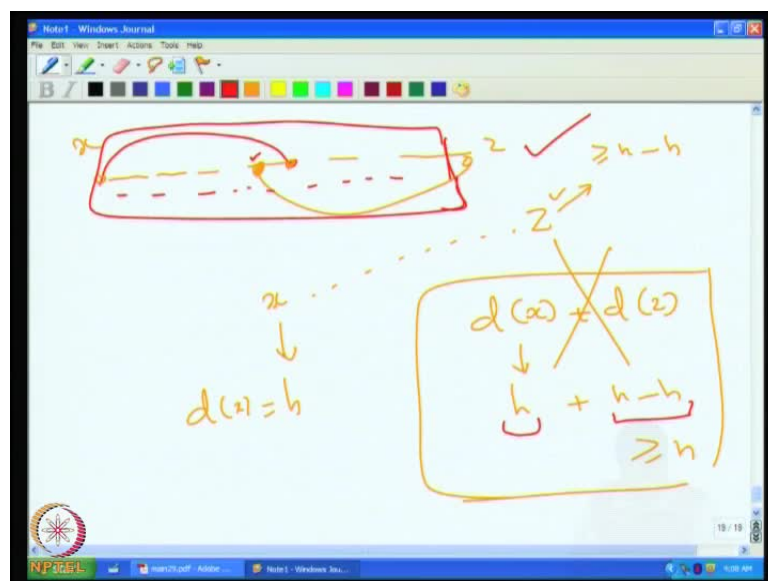 Note1 - Windows Journal
File Edit View Insert Actions Tools Help
B I
x
2
≥ n - h
2
x
d(x) + d(2)
d(x) = h
h + n - h
≥ n
19 / 19
NPTEL
main25.pdf - Adobe ...
Note1 - Windows Jou...
9:08 AM